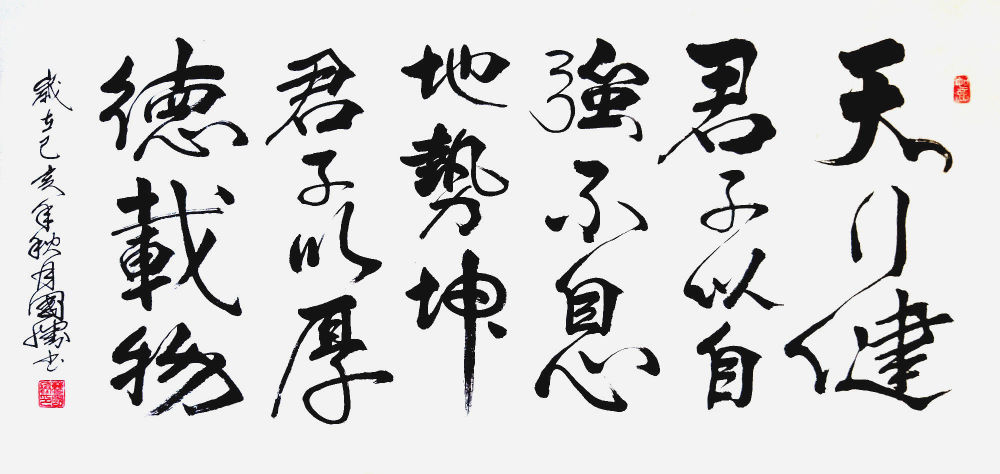 天行健
君子以自
強不息
地勢坤
君子以厚
德載物
歲在己亥年秋月國儒书